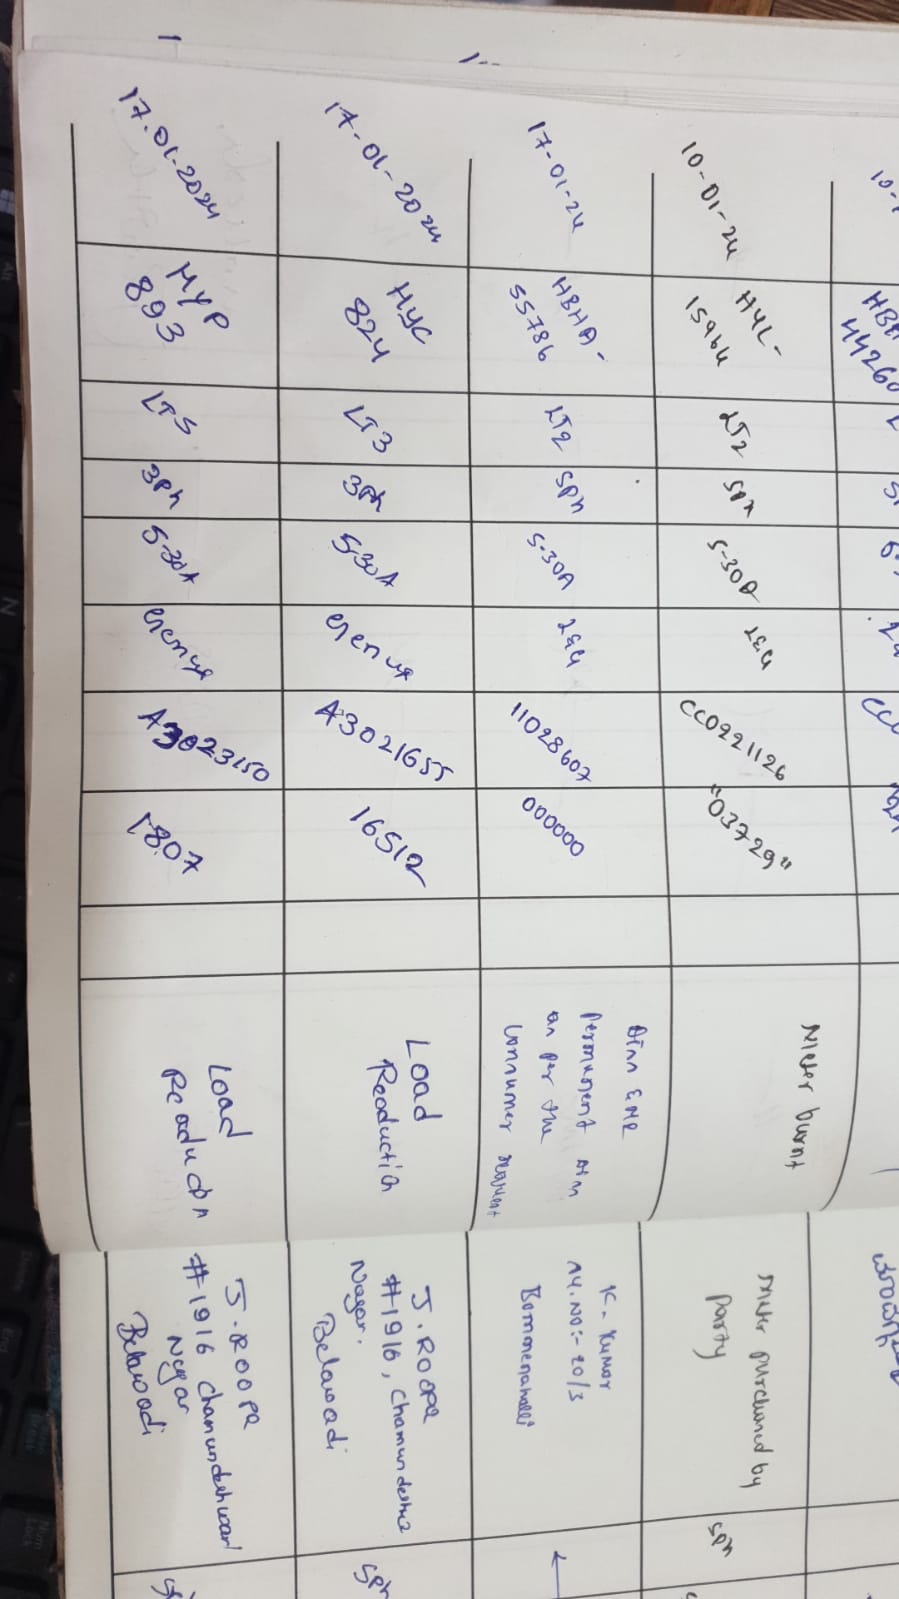 10-01-24
HYL-
15964
LT2
SPh
5-30A
L&T
CC0221126
"03729"
Meter burnt
Meter purchased by
party
SPh
17-01-24
HBHA-
55786
LT2
SPh
5-30A
11028607
000000
permanent
as per the
consumer request
K. Kumar
20/3
Bommenahalli
17-01-2024
HYC
824
LT3
3Ph
5-30A
genus
A3021655
16512
Load
Reduction
J. Roopa
#1916, Chamundeshwa
Nagar.
Belawadi
SPh
17.01.2024
HYP
893
LT5
3Ph
5-30A
genus
A3023150
1807
Load
Readuction
J. Roopa
#1916 Chamundeshwari
Nagar
Belawadi